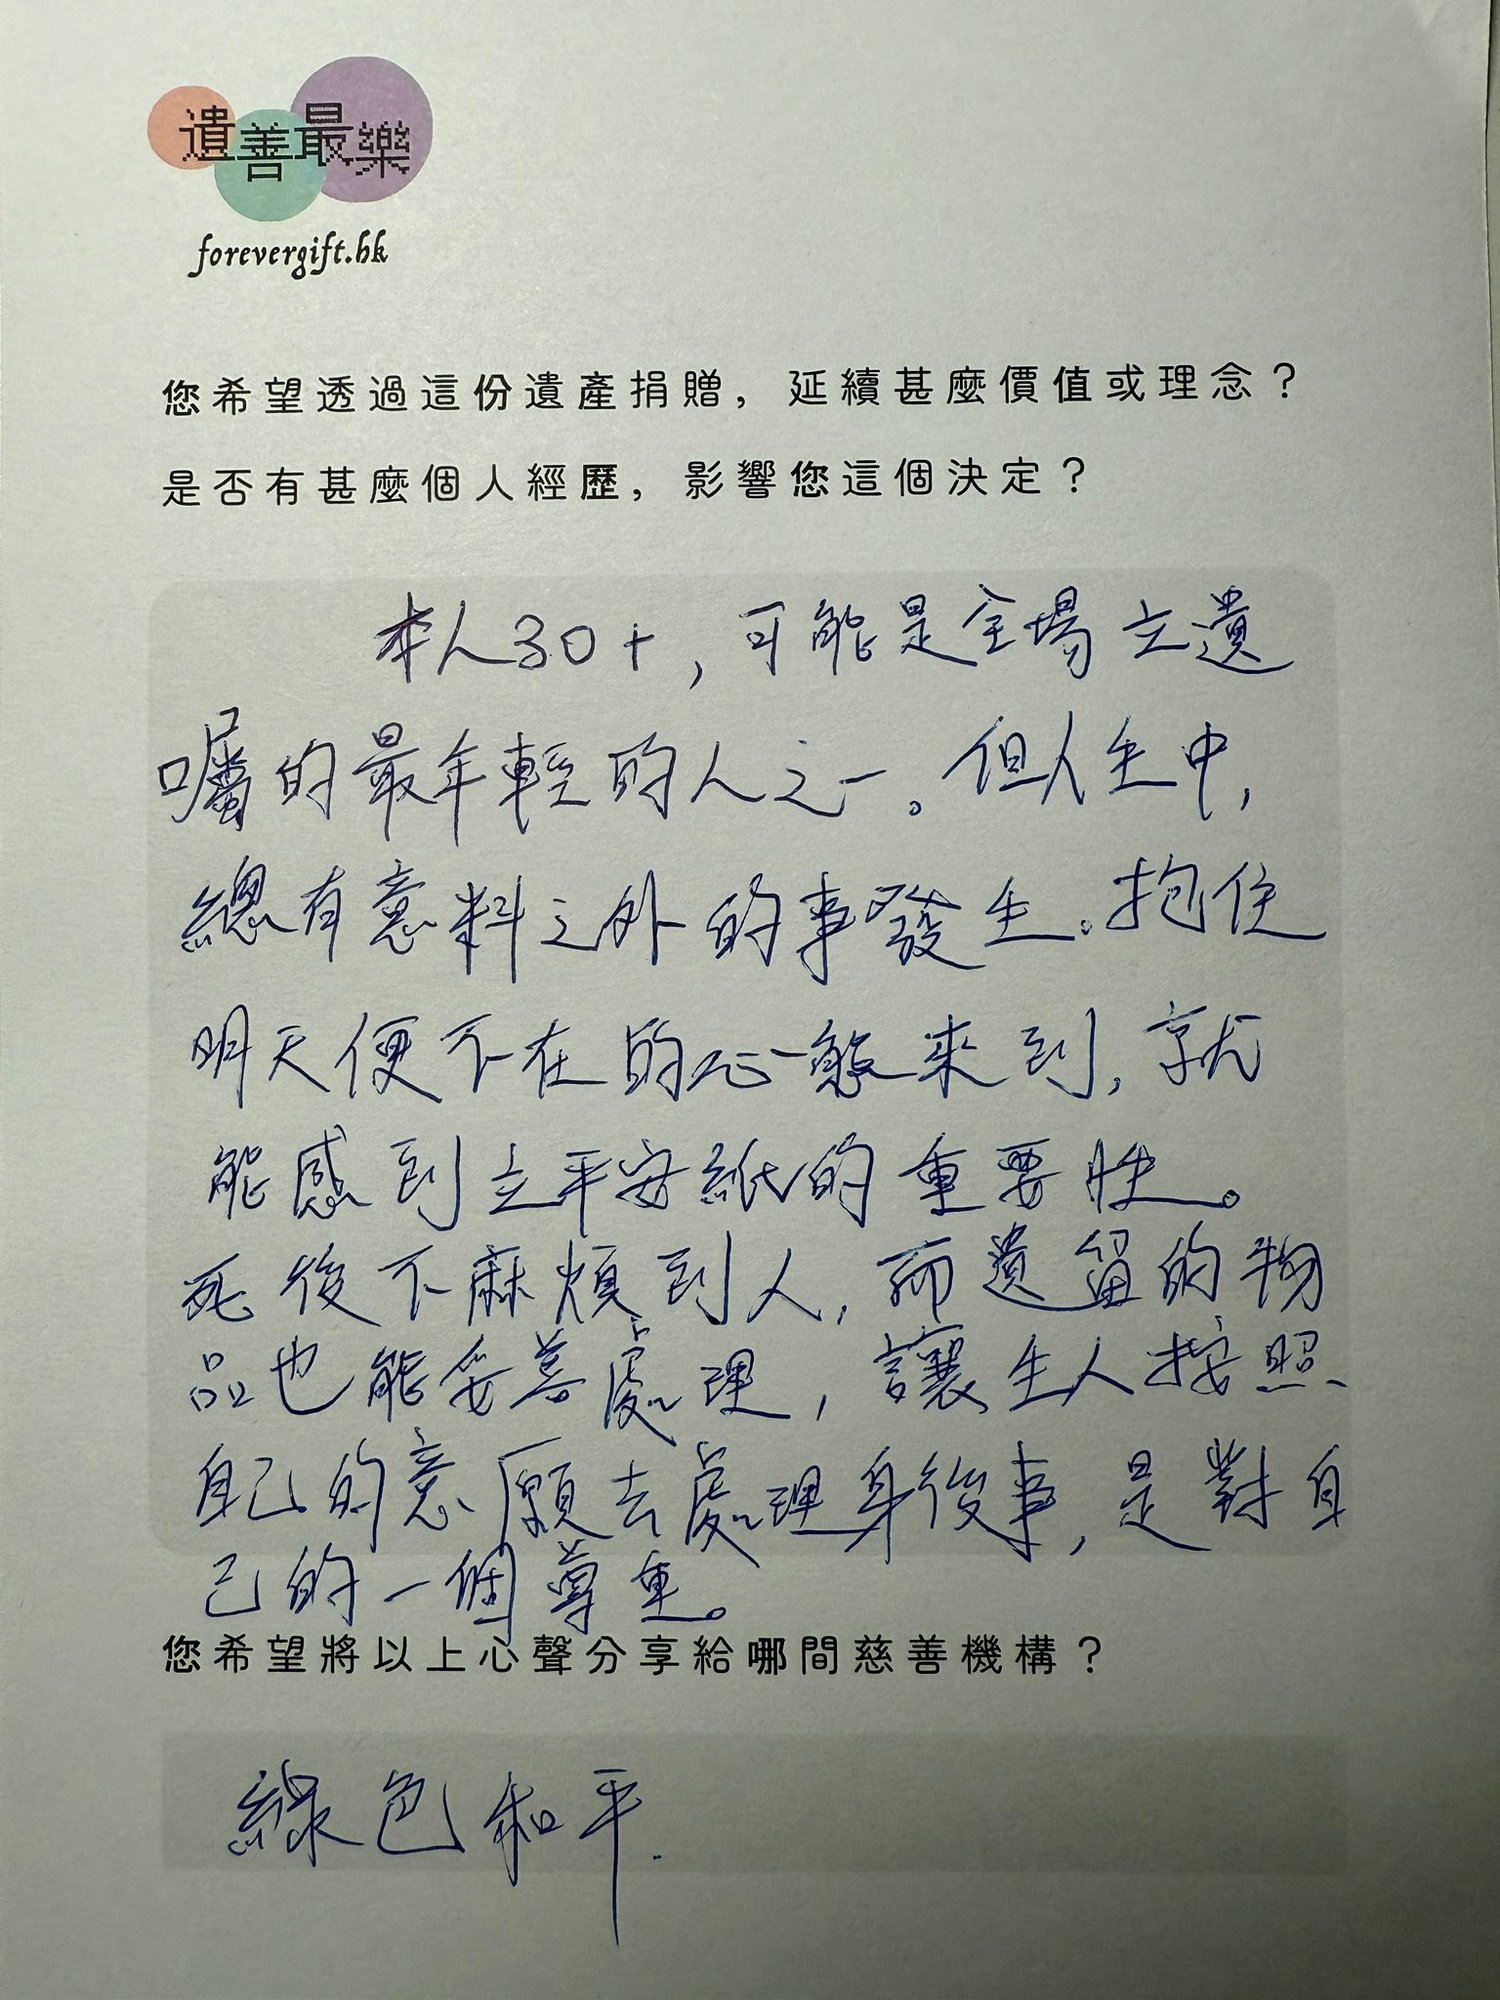 遺善最樂
forevergift.hk
您希望透過這份遺產捐贈，延續甚麼價值或理念？
是否有甚麼個人經歷，影響您這個決定？
本人30+，可能是全場立遺
囑的最年輕的人之一。但人生中，
總有意料之外的事發生。抱住
明天便不在的心態來到，就
能感到立平安紙的重要性。
死後不麻煩到人，而遺留的物
品也能妥善處理，讓生人按照
自己的意願去處理身後事，是對自
己的一個尊重。
您希望將以上心聲分享給哪間慈善機構？
綠色和平.